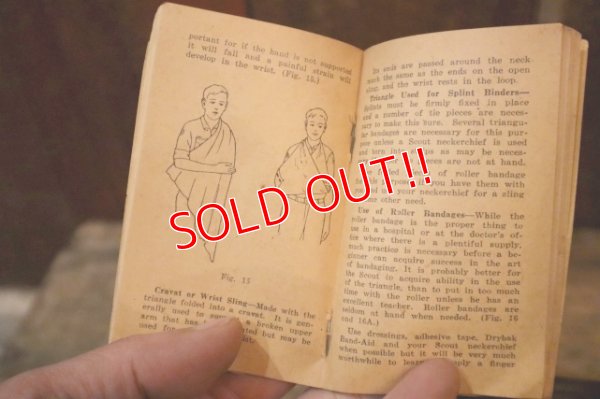 portant for if the hand is not supported
it will fall and a painful strain will
develop in the wrist. (Fig. 15.)
Fig. 15
Cravat or Wrist Sling—Made with the
triangle folded into a cravat. It is gen-
erally used to a broken upper
arm that has but may be
used for
Its ends are passed around the neck
much the same as the ends on the open
sling, and the wrist rests in the loop.
Triangle Used for Splint Binders—
Splints must be firmly fixed in place
and a number of tie pieces are neces-
sary to make this sure. Several triangu-
lar bandages are necessary for this pur-
pose unless a Scout neckerchief is used
and torn into as may be neces-
pieces are not at hand.
of roller bandage
this purpose if you have them with
your neckerchief for a sling
some other need.
Use of Roller Bandages—While the
roller bandage is the proper thing to
use in a hospital or at the doctor's of-
fice where there is a plentiful supply,
much practice is necessary before a be-
ginner can acquire success in the art
of bandaging. It is probably better for
the Scout to acquire ability in the use
of the triangle, than to put in too much
time with the roller unless he has an
excellent teacher. Roller bandages are
seldom at hand when needed. (Fig. 16
and 16A.)
Use dressings, adhesive tape, Drybak
Band-Aid and your Scout neckerchief
when possible but it will be very much
worthwhile to a finger
SOLD OUT!!